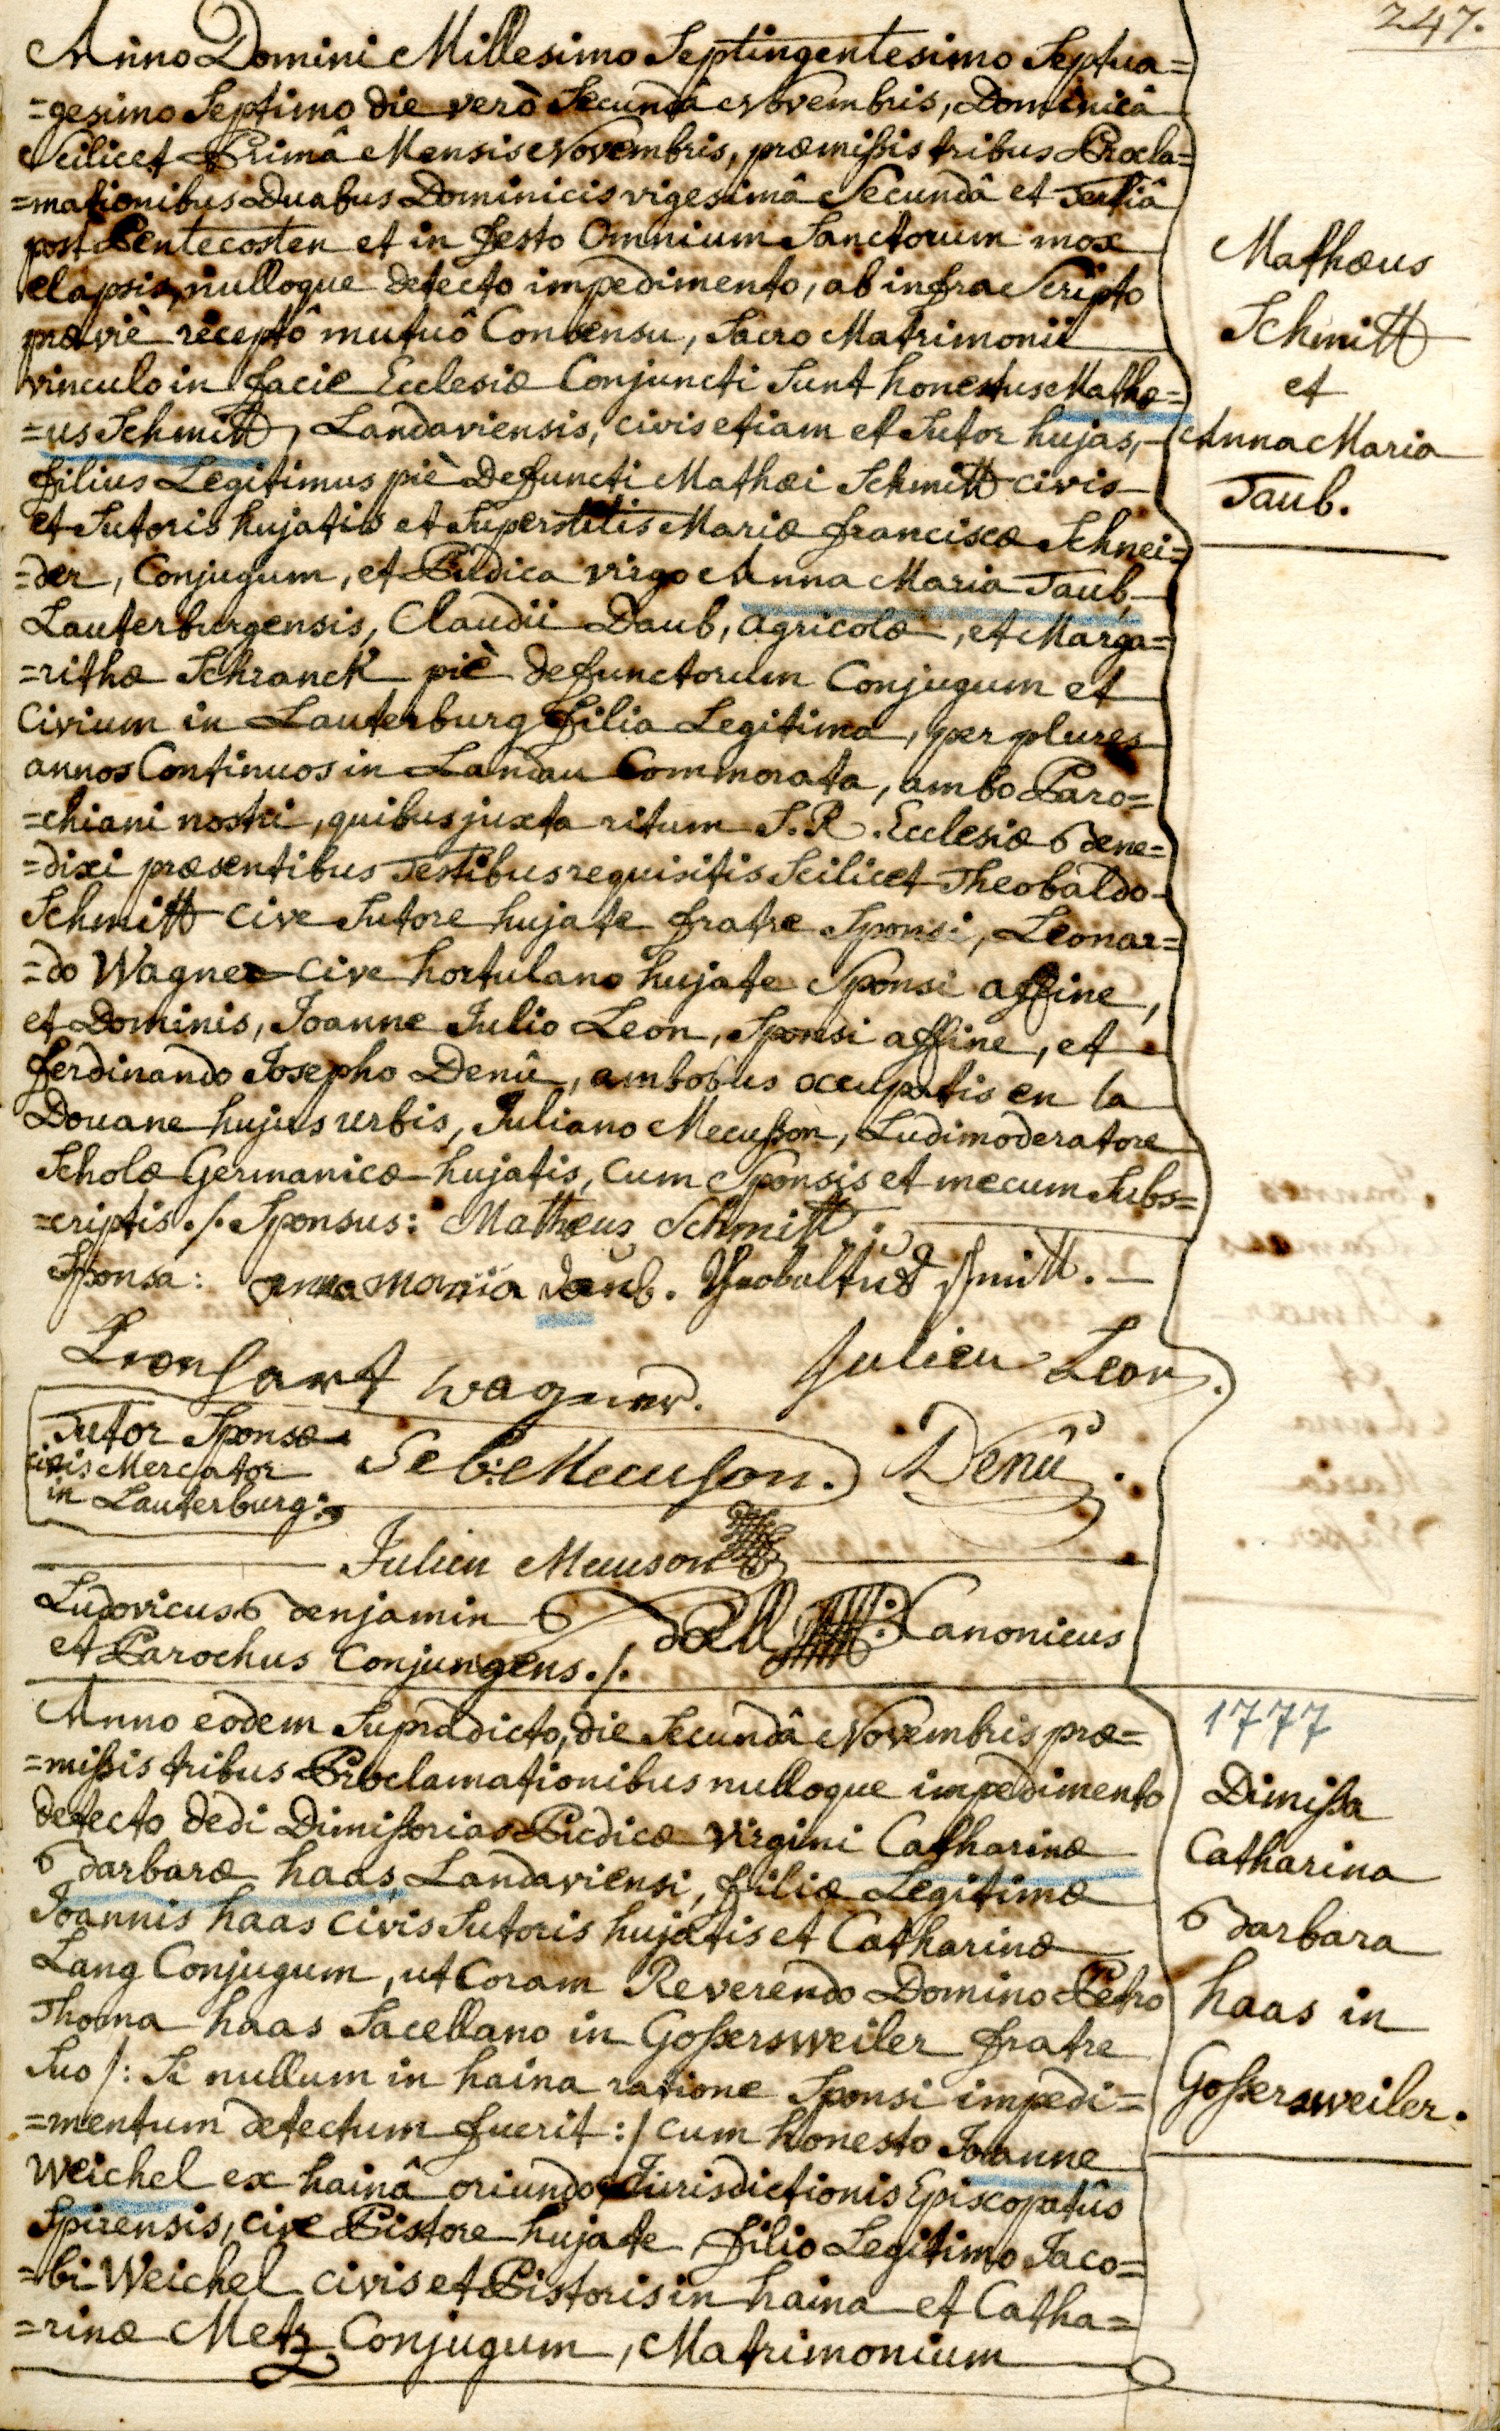 247.
Anno Domini Millesimo Septingentesimo Septua=
=gesimo Septimo die verò Secundâ Novembris, Dominicâ
Scilicet Primâ Mensis Novembris, præmißis tribus Procla=
=mationibus Duabus Dominicis vigesimâ Secundâ et Tertiâ
post Pentecosten et in festo Omnium Sanctorum mox
elapsis, nulloque detecto impedimento, ab infra Scripto
præviè receptô mutuô Consensu, Sacro Matrimonii
vinculo in facie Ecclesiæ Conjuncti Sunt honestus Mathæ=
=us Schmitt, Landaviensis, civis etiam et Sutor hujas,
filius Legitimus piè Defuncti Mathæi Schmitt civis
et Sutoris hujatis et Superstitis Mariæ franciscæ Schnei=
=der, Conjugum, et Pudica virgo Anna Maria Taub,
Lauterburgensis, Claudii Daub, agricolæ, et Marga=
=rithæ Schranck piè defunctorum Conjugum et
Civium in Lauterburg filia Legitima, per plures
annos Continuos in Landau Commorata, ambo Paro=
=chiani nostri, quibus juxta ritum S. R. Ecclesiæ Bene=
=dixi præsentibus Testibus requisitis Scilicet Theobaldo
Schmitt cive Sutore hujate fratre Sponsi, Leonar=
=do Wagner cive hortulano hujate Sponsi affine,
et Dominis, Joanne Julio Leon, Sponsi affine, et
ferdinando Josepho Denû, ambobus occupatis en la
Douane hujus urbis, Juliano Mecußon, Ludimoderatore
Scholæ Germanicæ hujatis, Cum Sponsis et mecum Subs=
=criptis ./. Sponsus: Matheus Schmitt.
Sponsa: anna maria daub. Theobaltus Schmitt.
Leonhart wagner. Julien Leon.
Tutor Sponsæ
civis Mercator
in Lauterburg:
Seb: Mecuson. Denû.
Julien Mecuson
Ludovicus Benjamin Böll Canonicus
et Parochus Conjungens ./.
Mathæus
Schmitt
et
Anna Maria
Taub.
Anno eodem Supradicto, die Secundâ Novembris præ=
=mißis tribus Proclamationibus nulloque impedimento
detecto dedi Dimißorias Pudicæ virgini Catharinæ
Barbaræ haas Landaviensi, filiæ Legitimæ
Joannis haas civis Sutoris hujatis et Catharinæ
Lang Conjugum, ut Coram Reverendo Domino Petro
Thoma haas Sacellano in Goßersweiler fratre
Suo /: Si nullum in haina ratione Sponsi impedi=
=mentum detectum fuerit :/ cum honesto Joanne
Weichel ex hainâ oriundo, Jurisdictionis Episcopatûs
Spirensis, cive Pistore hujate, filio Legitimo Jaco=
=bi Weichel civis et Pistoris in haina et Catha=
=rinæ Metz Conjugum, Matrimonium
1777
Dimißa
Catharina
Barbara
haas in
Goßersweiler.